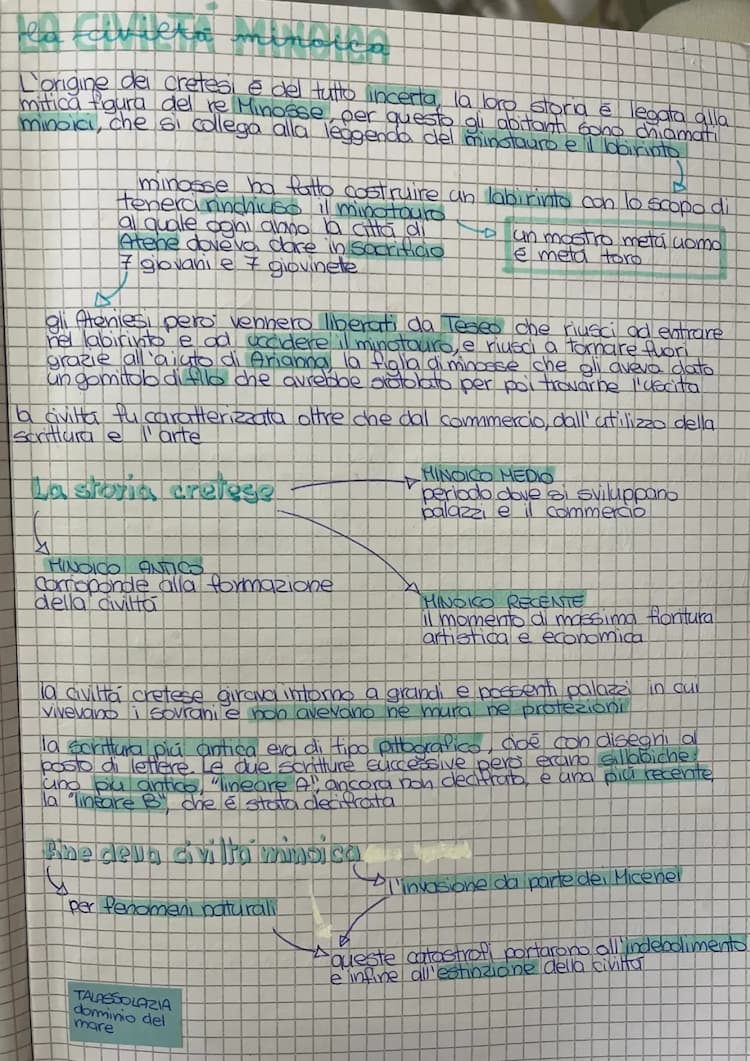 La CIVILTÁ minoica
L'origine dei cretesi é del tutto incerta, la loro storia é legata alla
mitica figura del re Minosse, per questo gli abitanti sono chiamati
minoici, che si collega alla leggenda del minotauro e il labirinto
minosse ha fatto costruire un labirinto con lo scopo di
tenerci rinchiuso il minotauro
al quale ogni anno la città di
Atene doveva dare in sacrificio
7 giovani e 7 giovinete
un mostro metá uomo
e metá toro
gli Ateniesi peró vennero liberati da Teseo che riusci ad entrare
nel labirinto e ad uccidere il minotauro, e riusci a tornare fuori
grazie all'aiuto di Arianna, la figlia di minosse che gli aveva dato
un gomitolo di filo che avrebbe srotolato per poi trovarne l'uscita
la civiltá fu caratterizzata oltre che dal commercio, dall'utilizzo della
scrittura e l'arte
La storia cretese
MINOICO MEDIO
periodo dove si sviluppano
palazzi e il commercio
MINOICO ANTICO
corrisponde alla formazione
della civiltá
MINOICO RECENTE
il momento di massima fioritura
artistica e economica
la civiltá cretese girava intorno a grandi e possenti palazzi in cui
vivevano i sovrani e non avevano ne mura ne protezioni
la scrittura piú antica era di tipo pittografico, cioé con disegni al
posto di lettere. Le due scritture successive peró erano sillabiche:
uno piú antico, "lineare A", ancora non decifrato, e una piú recente,
la "lineare B", che é stata decifrata
Fine della civiltá minoica
l'invasione da parte dei Micenei
per fenomeni naturali
queste catastrofi portarono all'indebolimento
e infine all'estinzione della civiltá
TALASSOLAZIA
dominio del
mare